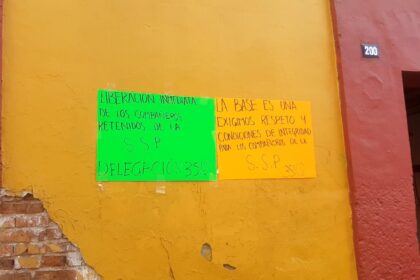 LIBERACIÓN INMEDIATA
DE LOS COMPAÑEROS
RETENIDOS DE LA
S.S.P
DELEGACIÓN 35
LA BASE ES UNA
EXIGIMOS RESPETO Y
CONDICIONES DE INTEGRIDAD
PARA LOS COMPAÑEROS DE LA
S.S.P
200